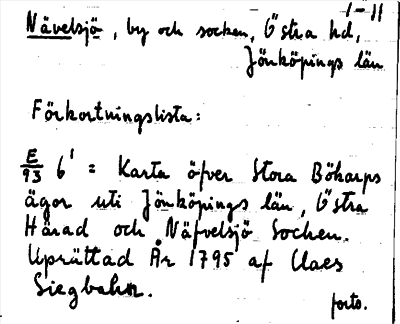 1-11
Nävelsjö, by och socken, Östra hd,
Jönköpings län
Förkortningslista:
E/93 6' = Karta öfver Stora Bökarps
ägor uti Jönköpings län, Östra
Härad och Näfvelsjö Socken.
Uprättad År 1795 af Claes
Siegbahn.
forts.